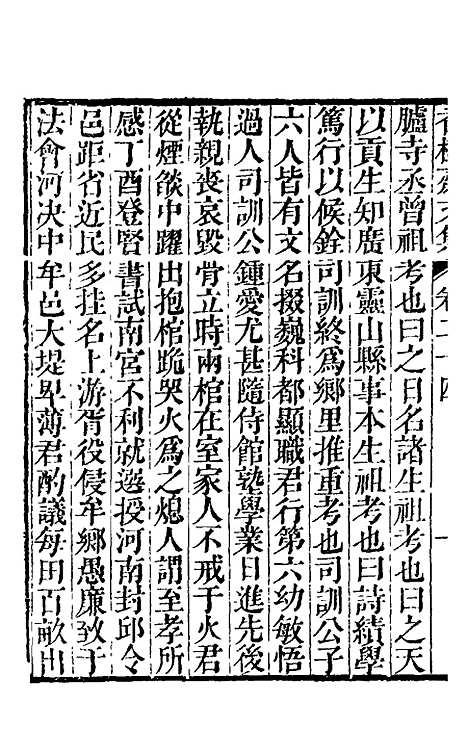 臚寺丞曾祖考也曰之日名諸生祖考也曰之天
以貢生知廣東靈山縣事本生祖考也曰詩績學
篤行以候銓司訓終為鄉里推重考也司訓公子
六人皆有文名掇巍科都顯職君行第六幼敏悟
過人司訓公鍾愛尤甚隨侍館塾學業日進先後
執親喪哀毀骨立時兩棺在室家人不戒于火君
從煙燄中躍出抱棺跪哭火為之熄人謂至孝所
感丁酉登賢書試南宮不利就選授河南封邱令
邑距省近民多挂名上游胥役侵牟鄉愚廉致于
法會河決中牟邑大堤卑薄君酌議每田百畝出